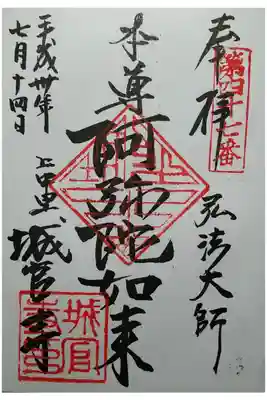 奉拝
第四十七番
弘法大師
本尊
阿弥陀如来
平成卅年
七月十四日
上中里
城官寺
城官寺